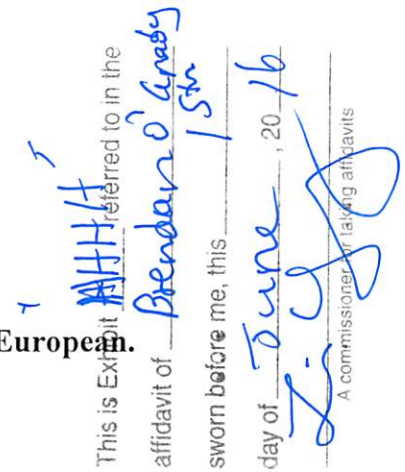 This is Exhibit "HHH" referred to in the
affidavit of Brendan O'Grady
sworn before me, this 1st
day of June, 2016
A commissioner for taking affidavits
European.